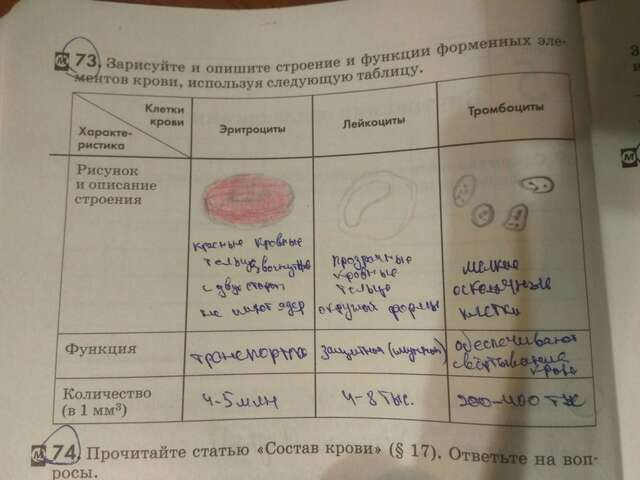 73. Зарисуйте и опишите строение и функции форменных эле-
ментов крови, используя следующую таблицу.
Клетки
крови
Характе-
ристика
Эритроциты
Лейкоциты
Тромбоциты
Рисунок
и описание
строения
красные кровные
тельца
с двух сторон
не имеют ядер
прозрачные
кровные
тельца
округлой формы
мелкие
клетки
Функция
транспортная
защитная
обеспечивают
свёртывание
крови
Количество
(в 1 мм³)
4-5 млн
4-8 тыс.
200-400 тыс
М 74. Прочитайте статью «Состав крови» (§ 17). Ответьте на воп-
росы.